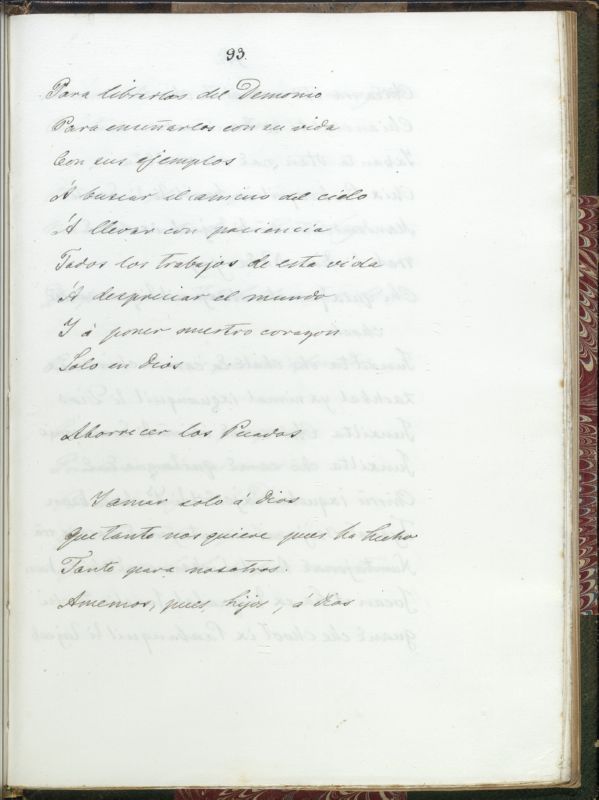 93.
Para librarlos del Demonio
Para enseñarlos con su vida
Con sus ejemplos
Á buscar el camino del cielo
Á llevar con paciencia
Todos los trabajos de esta vida
Á despreciar el mundo
Y á poner nuestro corazon
Solo en Dios
Aborrecer los Pecados
Y amar solo á Dios
que tanto nos quiere pues ha hecho
Tanto para nosotros.
Amemos, pues, hijos, á Dios